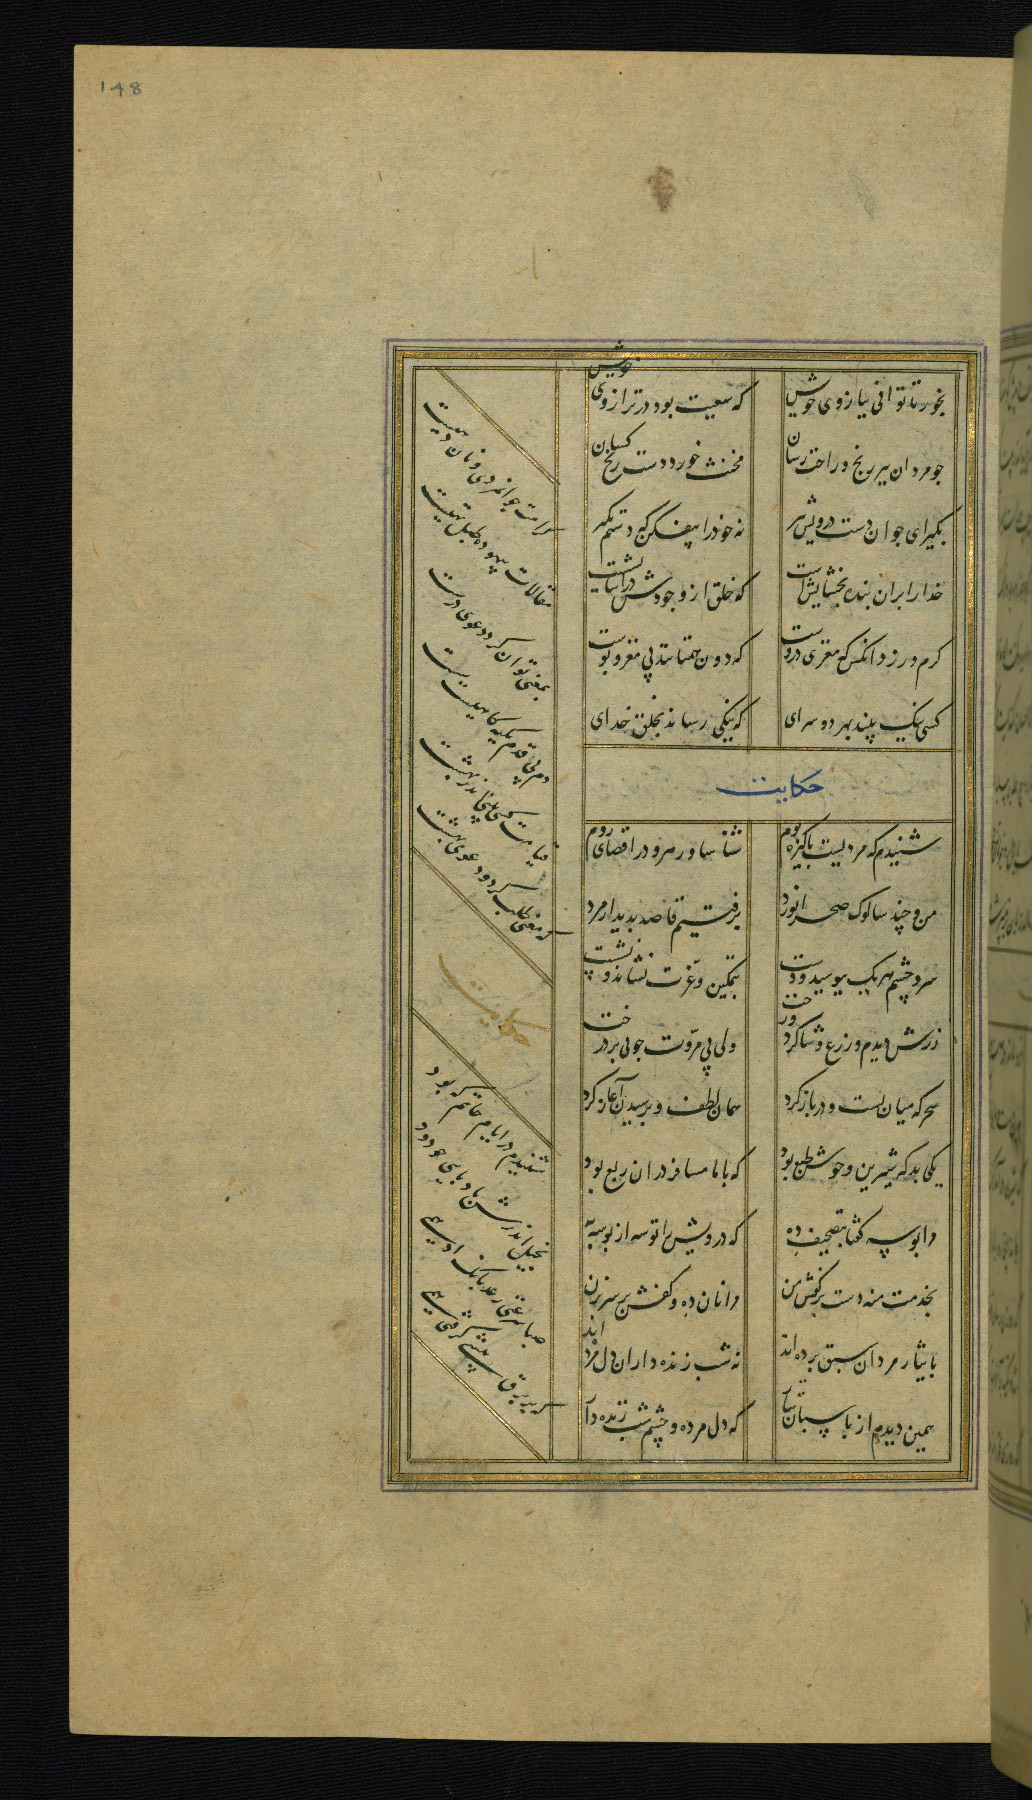 148
بخور تا توانی ببازوی خویش که سعیت بود در ترازوی خویش
چو مردان ببر رنج و راحت رسان مخنث خورد دست رنج کسان
بگیر ای جوان دست درویش پیر نه خود را بیفکن که دستم بگیر
خدا را بران بنده بخشایش است که خلق از وجودش در آسایش است
کرم ورزد آنکس که مغزی دروست که دون همتانند بی مغز و پوست
کسی نیک بیند بهر دو سرای که نیکی رساند بخلق خدای
حکایت
شنیدم که مردیست پاکیزه بوم شناسا و رهرو در اقصای روم
من و چند سالوک صحرا نورد برفتیم قاصد بدیدار مرد
سر و چشم هر یک ببوسید و دست بتمکین و عزت نشاند و نشست
زرش دیدم و زرع و شاگرد و رخت ولی بی مروت چو بی بر درخت
سحرگه میان بست و در باز کرد همان لطف و پرسیدن آغاز کرد
یکی بد که شیرین و خوش طبع بود که با ما مسافر در آن ربع بود
مرا بوسه گفتا بتصحیف ده که درویش را توشه از بوسه به
بخدمت منه دست بر کفش من مرا نان ده و کفش بر سر بزن
بایثار مردان سبق برده اند نه شب زنده داران دل مرده اند
همین دیدم از پاسبان تتار که دل مرده و چشم شب زنده دار
کرامت جوانمردی و نان دهیست
مقالات بیهوده طبل تهیست
بمعنی توان کرد دعوی درست
دم بی قدم تکیه گاهیست سست
قیامت کسی بینی اندر بهشت
که معنی طلب کرد و دعوی بهشت
حکایت
شنیدم در ایام حاتم که بود
بخیل اندرش بادپایی چو دود
صبا سرعتی رعد بانگ ادهمی
که بر برق پیشی گرفتی همی